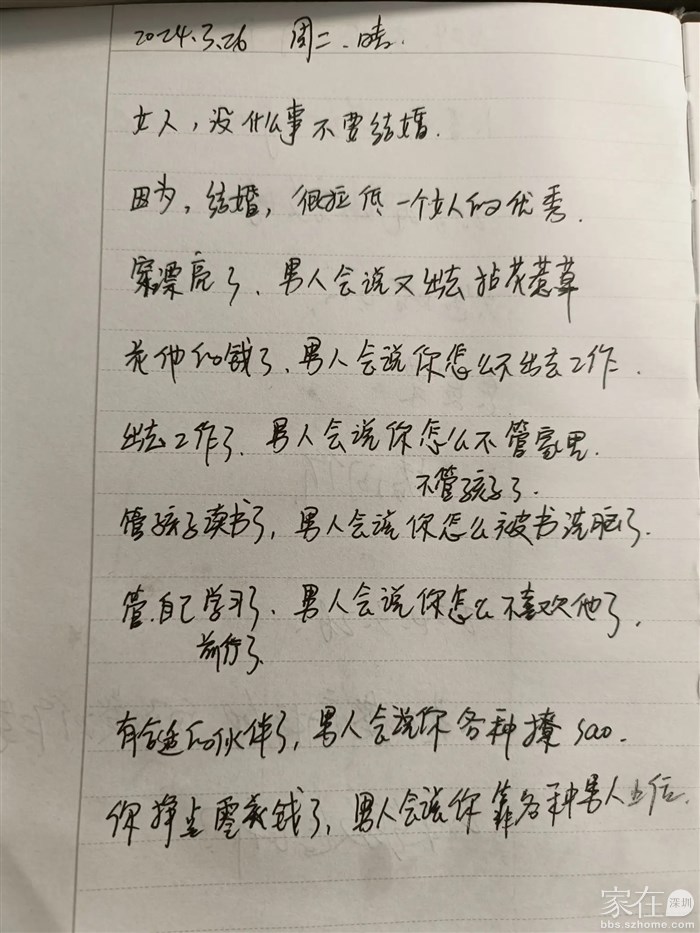 2024.3.26 周二.晴.
女人,没什么事不要结婚.
因为,结婚,很拉低一个女人的优秀.
穿漂亮了、男人会说又出去拈花惹草
花他的钱了、男人会说你怎么不出去工作.
出去工作了、男人会说你怎么不管家里.
不管孩子了.
管孩子读书了,男人会说你怎么被书洗脑了.
管.自己学习了、男人会说你怎么不喜欢他了.
前行了.
有合适的伙伴了,男人会说你各种撩sao.
你挣点零花钱了,男人会说你靠各种男人上位.
家在深圳
bbs.szhome.com